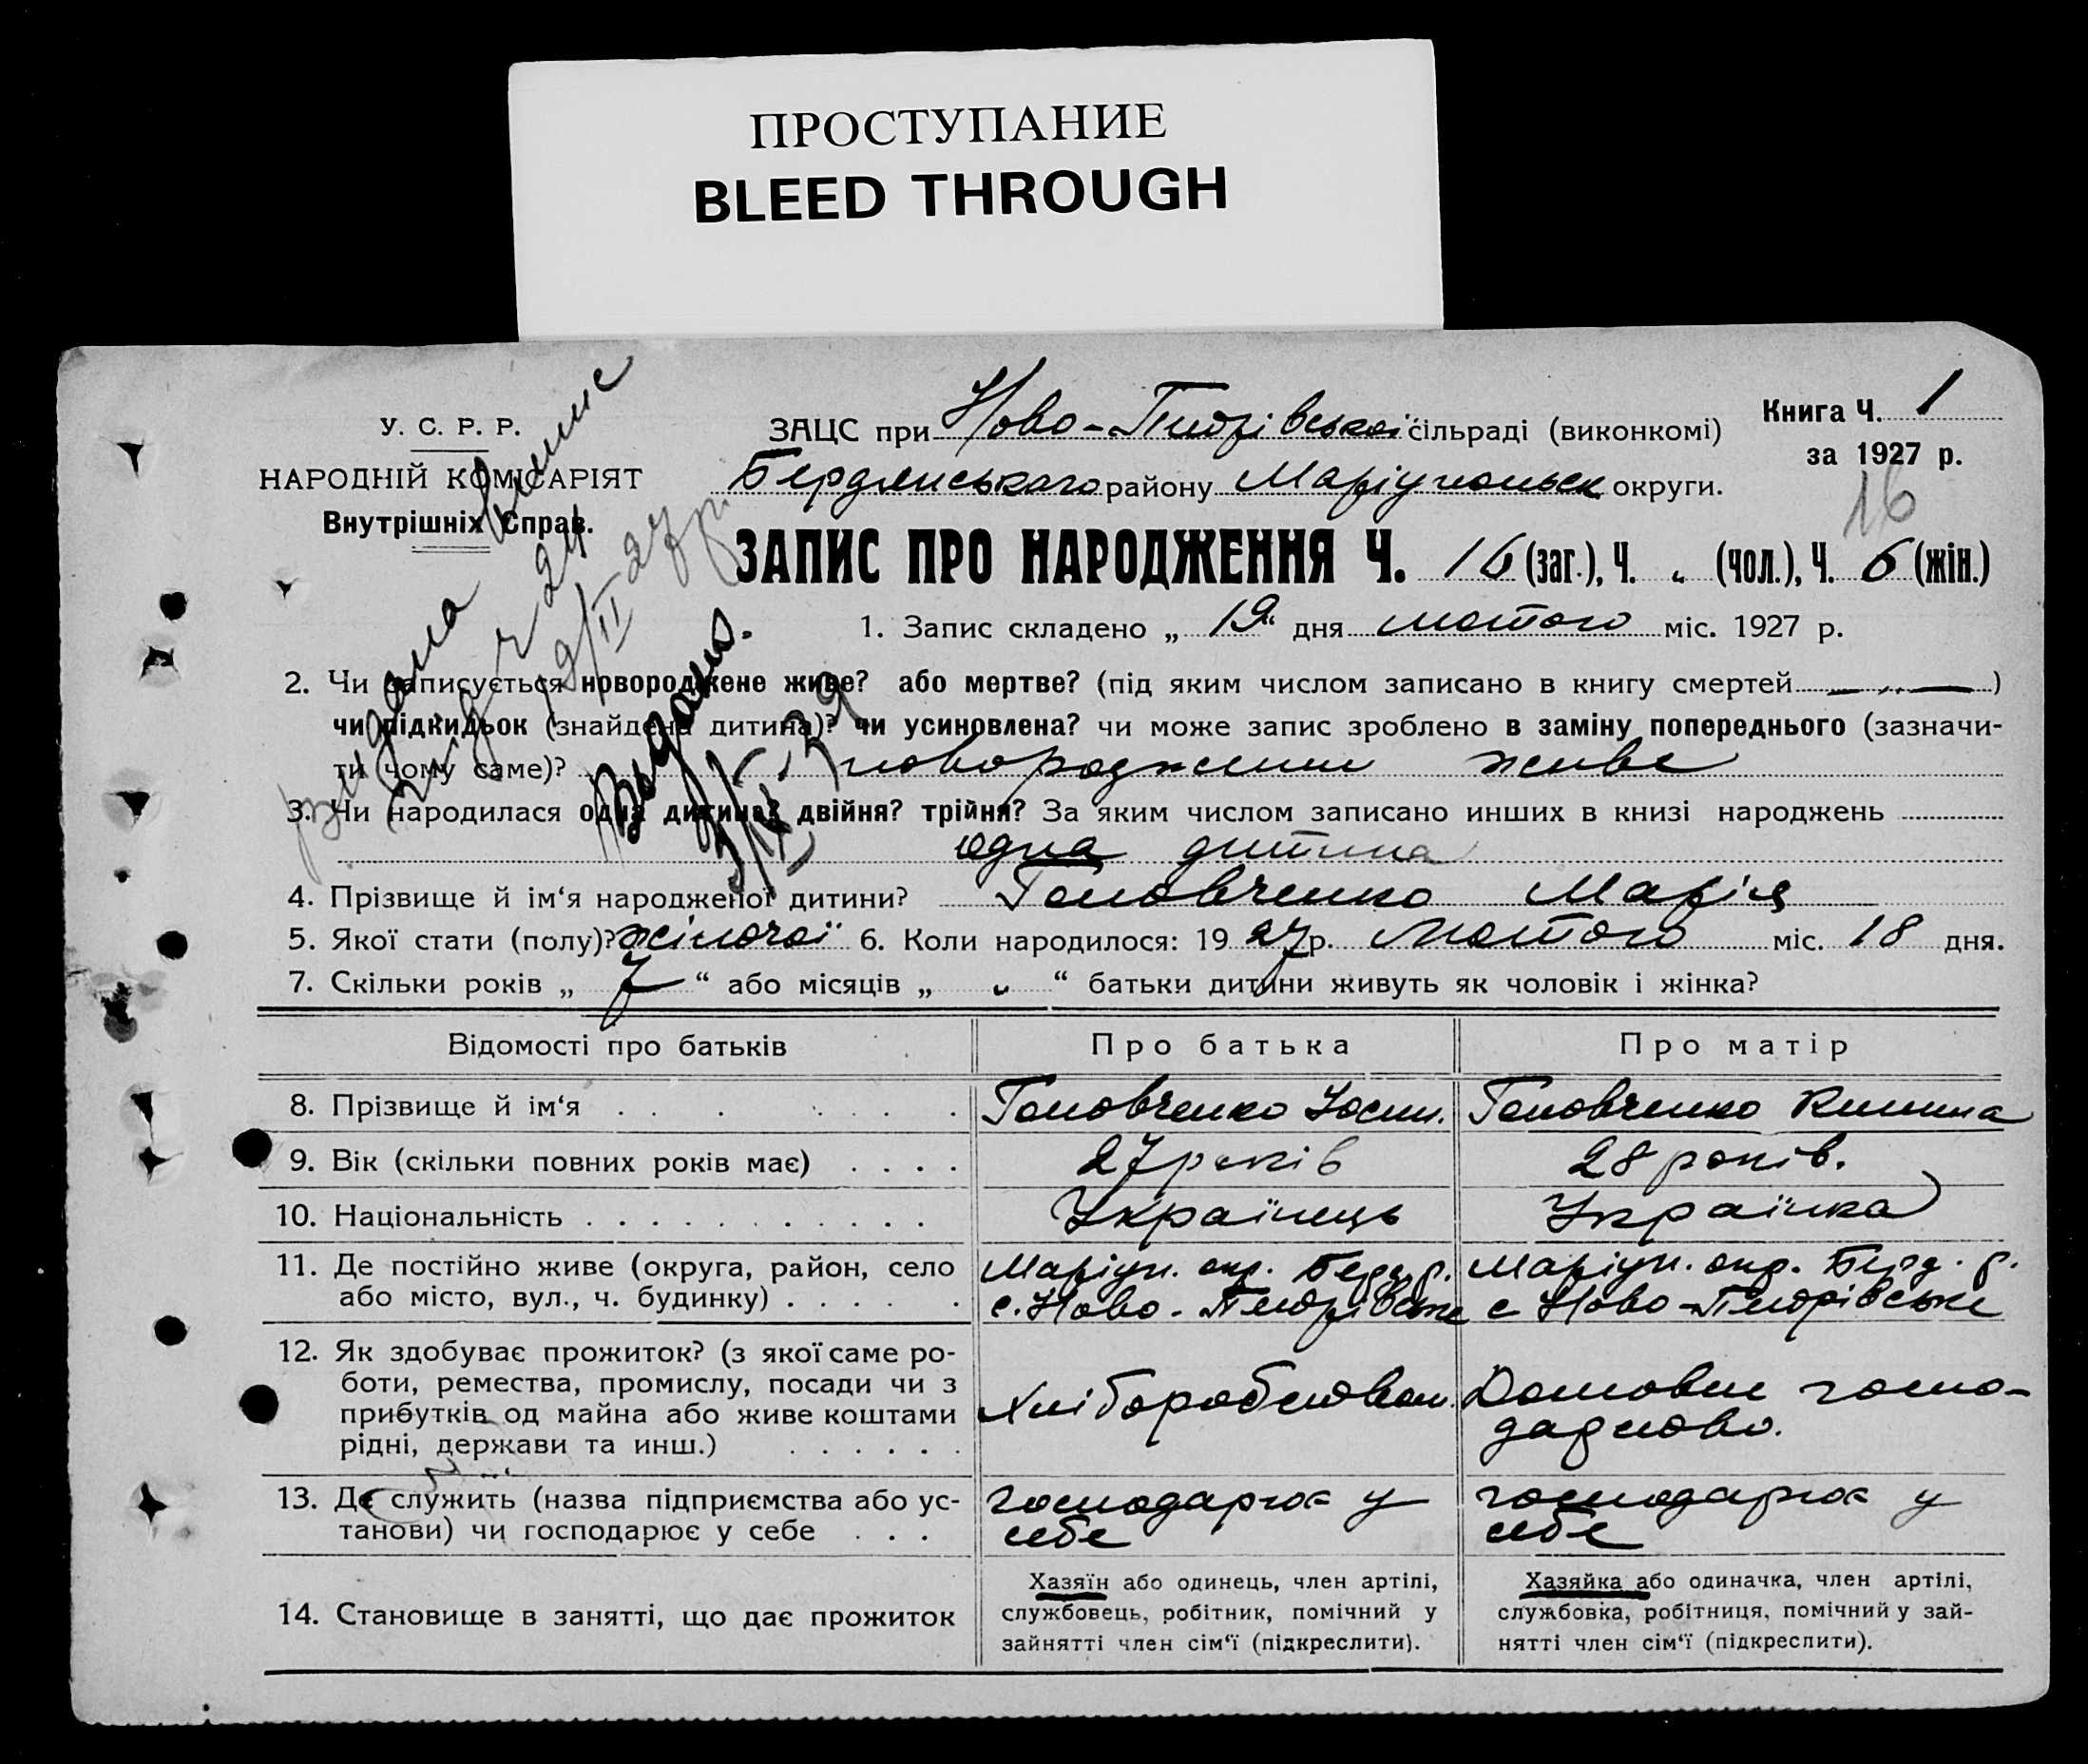 ПРОСТУПАНИЕ
BLEED THROUGH
У. С. Р. Р.
НАРОДНІЙ КОМІСАРІЯТ
Внутрішніх Справ.
ЗАЦС при Ново- сільраді (виконкомі)
Бердянського району Маріупольськ округи.
Книга Ч. 1
за 1927 р.
16
ЗАПИС ПРО НАРОДЖЕННЯ Ч. 16 (заг.), Ч. „ (чол.), Ч. 6 (жін.)
1. Запис складено „ 19 “ дня лютого міс. 1927 р.
2. Чи записується новороджене живе? або мертве? (під яким числом записано в книгу смертей — „ —)
чи підкидьок (знайдена дитина)? чи усиновлена? чи може запис зроблено в заміну попереднього (зазначи-
ти чому саме)? новороджений живе
3. Чи народилася одна дитина? двійня? трійня? За яким числом записано инших в книзі народжень
одна дитина
4. Прізвище й ім‘я народженої дитини? Головченко Марія
5. Якої стати (полу)? жіночої 6. Коли народилося: 19 27 р. Лютого міс. 18 дня.
7. Скільки років „ 7 “ або місяців „ „ “ батьки дитини живуть як чоловік і жінка?
видана випис
19/II 27 р.
Видано.
Відомості про батьків Про батька Про матір
8. Прізвище й ім‘я Головченко Йосип. Головченко Килина
9. Вік (скільки повних років має) 27 років 28 років.
10. Національність Українець Українка
11. Де постійно живе (округа, район, село Маріуп. окр. Берд. р. Маріуп. окр. Берд. р.
або місто, вул., ч. будинку) с. Ново- с Ново-
12. Як здобуває прожиток? (з якої саме ро-
боти, ремества, промислу, посади чи з Домовим госпо-
прибутків од майна або живе коштами Хліборобством.
рідні, держави та инш.) дарством.
13. Де служить (назва підприємства або ус- господарює у господарює у
танови) чи господарює у себе себе себе
14. Становище в занятті, що дає прожиток
Хазяїн або одинець, член артілі,
службовець, робітник, помічний у
зайнятті член сім‘ї (підкреслити).
Хазяйка або одиначка, член артілі,
службовка, робітниця, помічний у зай-
нятті член сім‘ї (підкреслити).